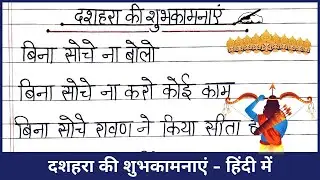 दशहरा की शुभकामनाएं
बिना सोचे ना बोलो
बिना सोचे ना करो कोई काम
बिना सोचे रावण ने किया सीता
दशहरा की शुभकामनाएं - हिंदी में